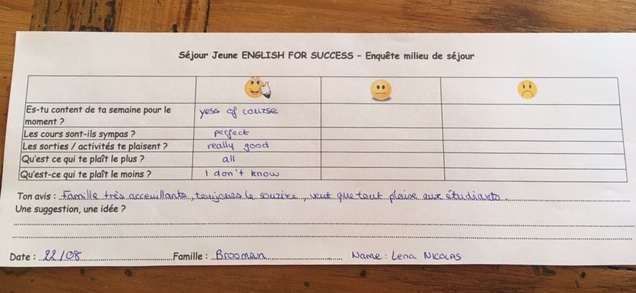 Séjour Jeune ENGLISH FOR SUCCESS - Enquête milieu de séjour
Es-tu content de ta semaine pour le moment ? yess of course
Les cours sont-ils sympas ? perfect
Les sorties / activités te plaisent ? really good
Qu'est ce qui te plaît le plus ? all
Qu'est-ce qui te plaît le moins ? I don't know
Ton avis : Famille très acceuillante, toujours le sourire, veut que tout plaise aux étudiants.
Une suggestion, une idée ?
Date : 22/08 Famille : Brooman Name : Lena NICOLAS